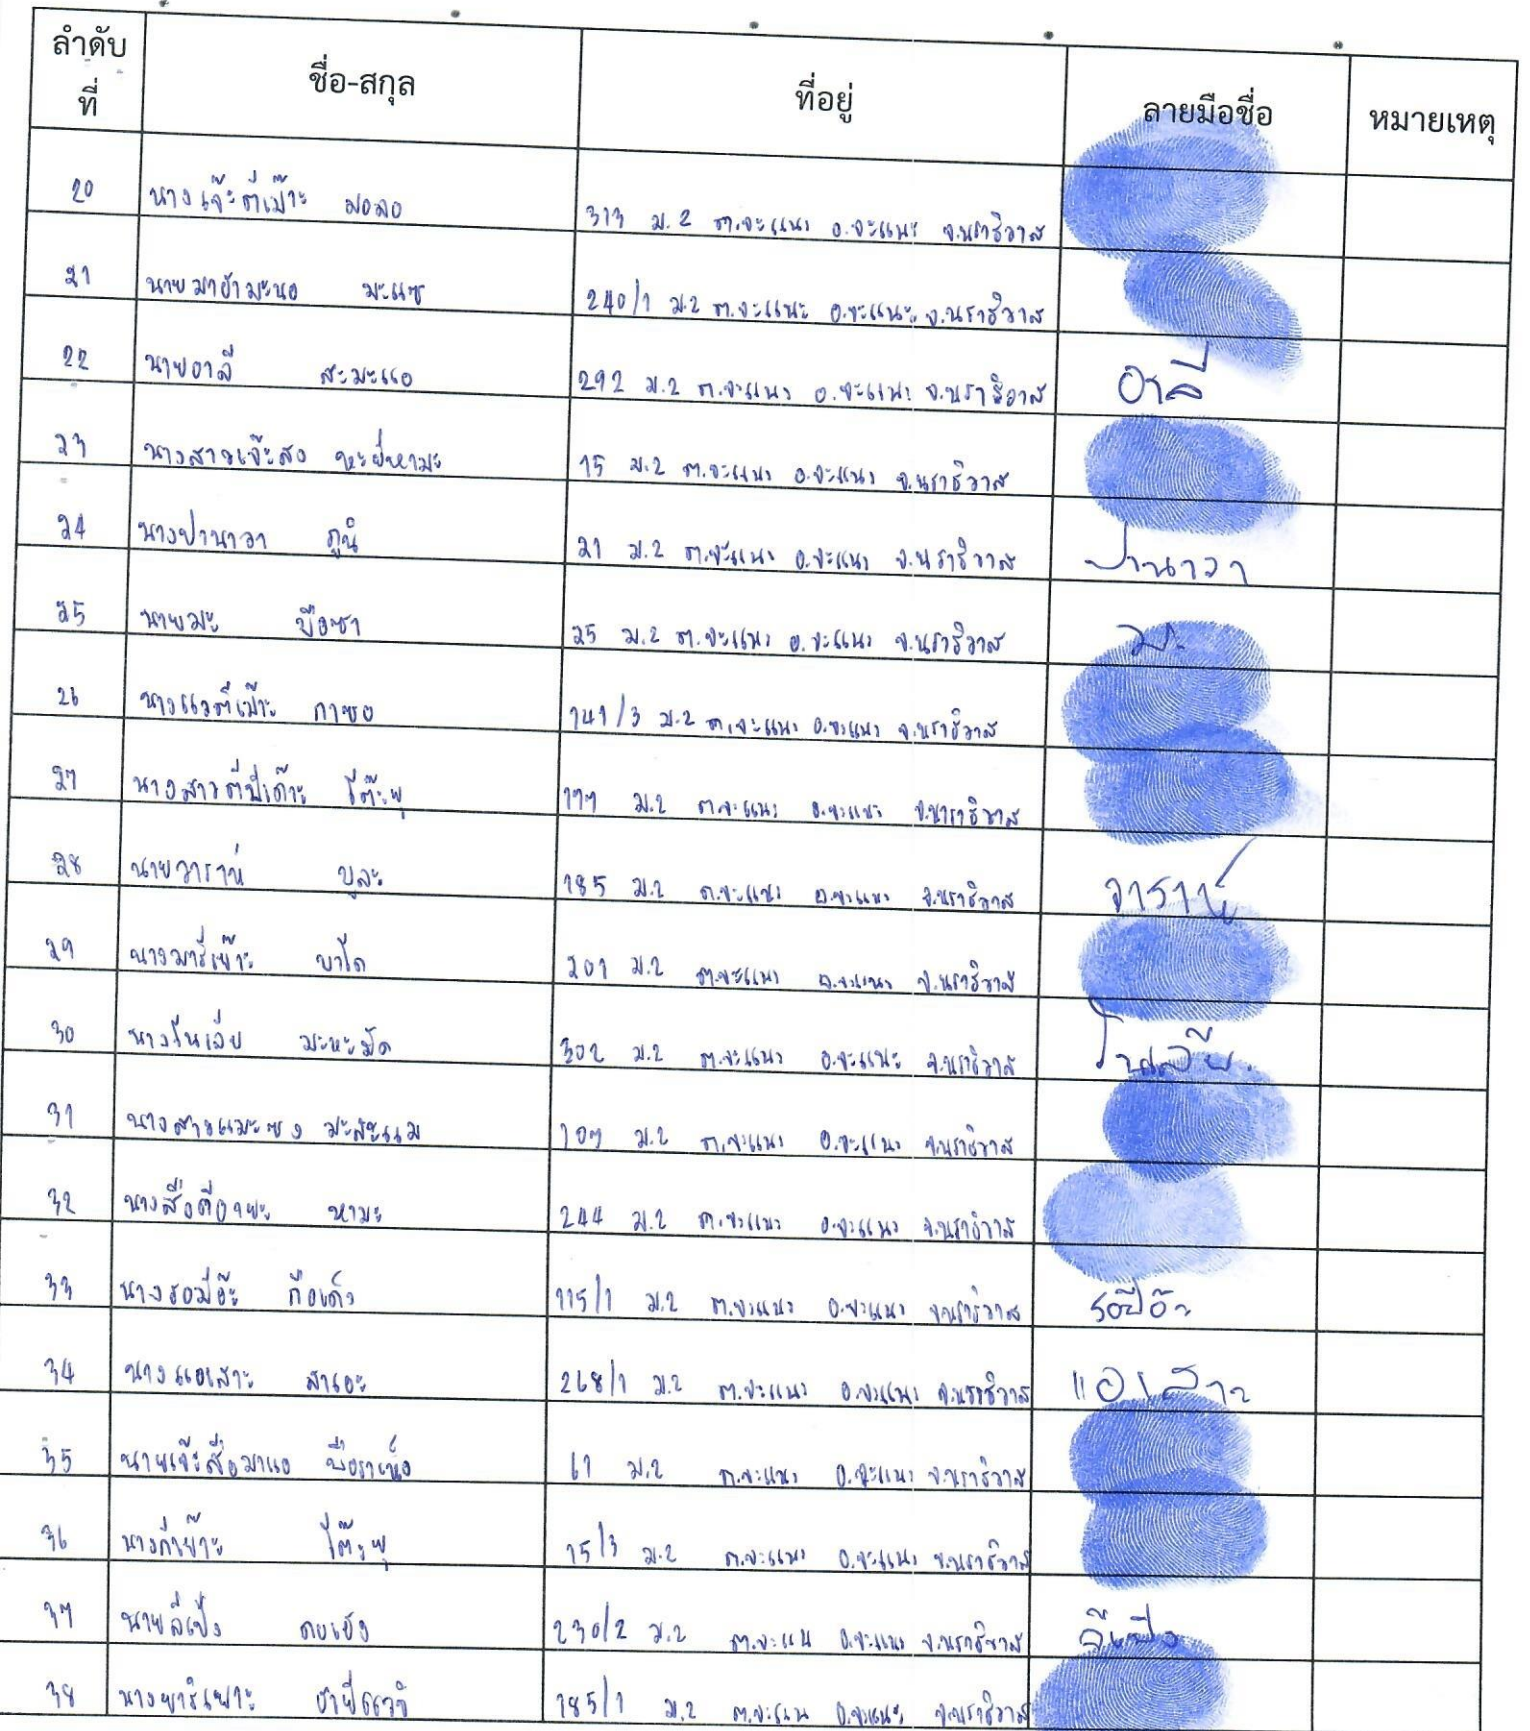 ลำดับที่ ชื่อ-สกุล ที่อยู่ ลายมือชื่อ หมายเหตุ
20 นางเจ๊ะตีเม๊าะ มอลอ 313 ม.2 ต.จะแนะ อ.จะแนะ จ.นราธิวาส
21 นายมาฮามะนอ มะแซ 240/1 ม.2 ต.จะแนะ อ.จะแนะ จ.นราธิวาส
22 นายอาลี สะมะแอ 292 ม.2 ต.จะแนะ อ.จะแนะ จ.นราธิวาส อาลี
23 นางสาวเจ๊ะสง หะยีหามะ 15 ม.2 ต.จะแนะ อ.จะแนะ จ.นราธิวาส
24 นางปานาวา ภูนิ 21 ม.2 ต.จะแนะ อ.จะแนะ จ.นราธิวาส ปานาวา
25 นายมะ บือซา 25 ม.2 ต.จะแนะ อ.จะแนะ จ.นราธิวาส มะ
26 นางแวตีเม๊าะ กาซอ 141/3 ม.2 ต.จะแนะ อ.จะแนะ จ.นราธิวาส
27 นางสาวตีปีเด๊าะ โต๊ะยุ 177 ม.2 ต.จะแนะ อ.จะแนะ จ.นราธิวาส
28 นายวาราห์ บูละ 185 ม.2 ต.จะแนะ อ.จะแนะ จ.นราธิวาส วาราห์
29 นางมารีเย๊าะ บาโด 201 ม.2 ต.จะแนะ อ.จะแนะ จ.นราธิวาส
30 มะหะมัด 302 ม.2 ต.จะแนะ อ.จะแนะ จ.นราธิวาส
31 นางสาวแมะซง มะสะแม 107 ม.2 ต.จะแนะ อ.จะแนะ จ.นราธิวาส
32 นางสือตีอายะ หามะ 244 ม.2 ต.จะแนะ อ.จะแนะ จ.นราธิวาส
33 นางรอมือ๊ะ กือเด็ง 115/1 ม.2 ต.จะแนะ อ.จะแนะ จ.นราธิวาส
34 นางแอเสาะ สาเอะ 268/1 ม.2 ต.จะแนะ อ.จะแนะ จ.นราธิวาส แอเสาะ
35 นายเจ๊ะสือมาแอ บือราเห็ง 61 ม.2 ต.จะแนะ อ.จะแนะ จ.นราธิวาส
36 โต๊ะยุ 15/3 ม.2 ต.จะแนะ อ.จะแนะ จ.นราธิวาส
37 นายลีเป็ง 230/2 ม.2 ต.จะแน อ.จะแนะ จ.นราธิวาส
38 นางยารีเยาะ 185/1 ม.2 ต.จะแน อ.จะแนะ จ.นราธิวาส